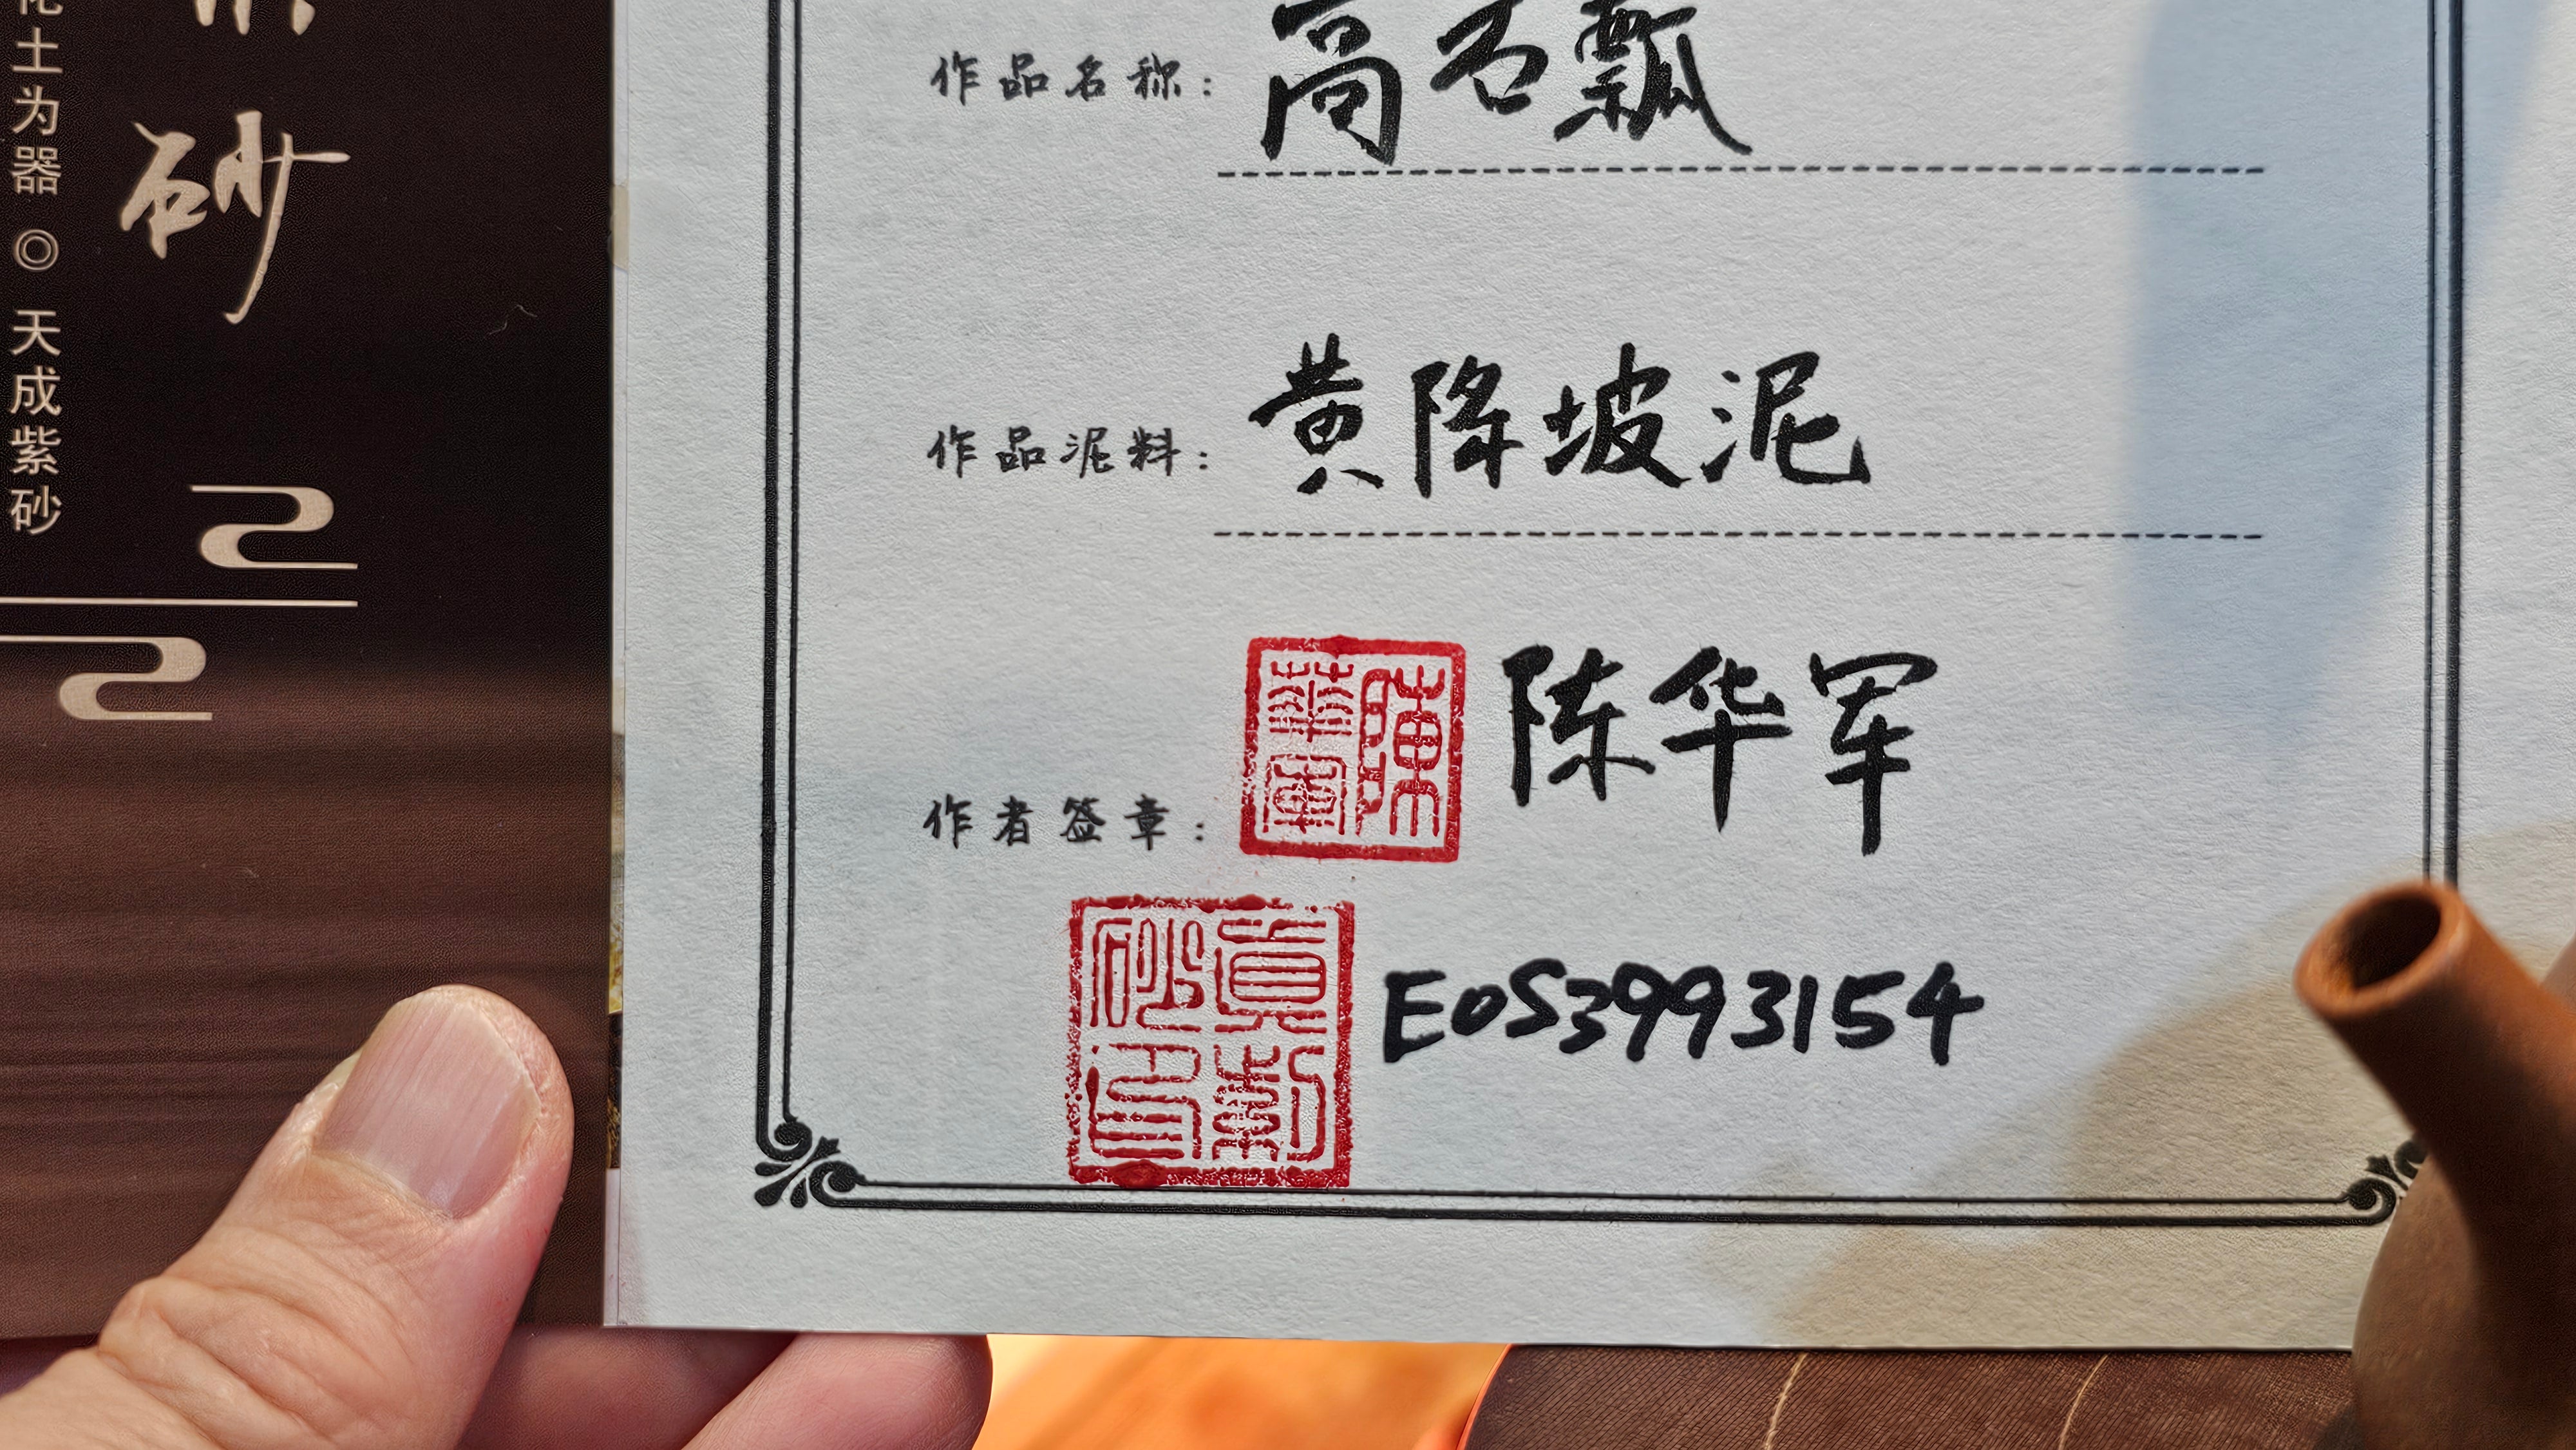 化土为器 ◎ 天成紫砂
砂
作品名称：高石瓢
作品泥料：黄降坡泥
陳華軍
作者签章：陈华军
E0S3993154